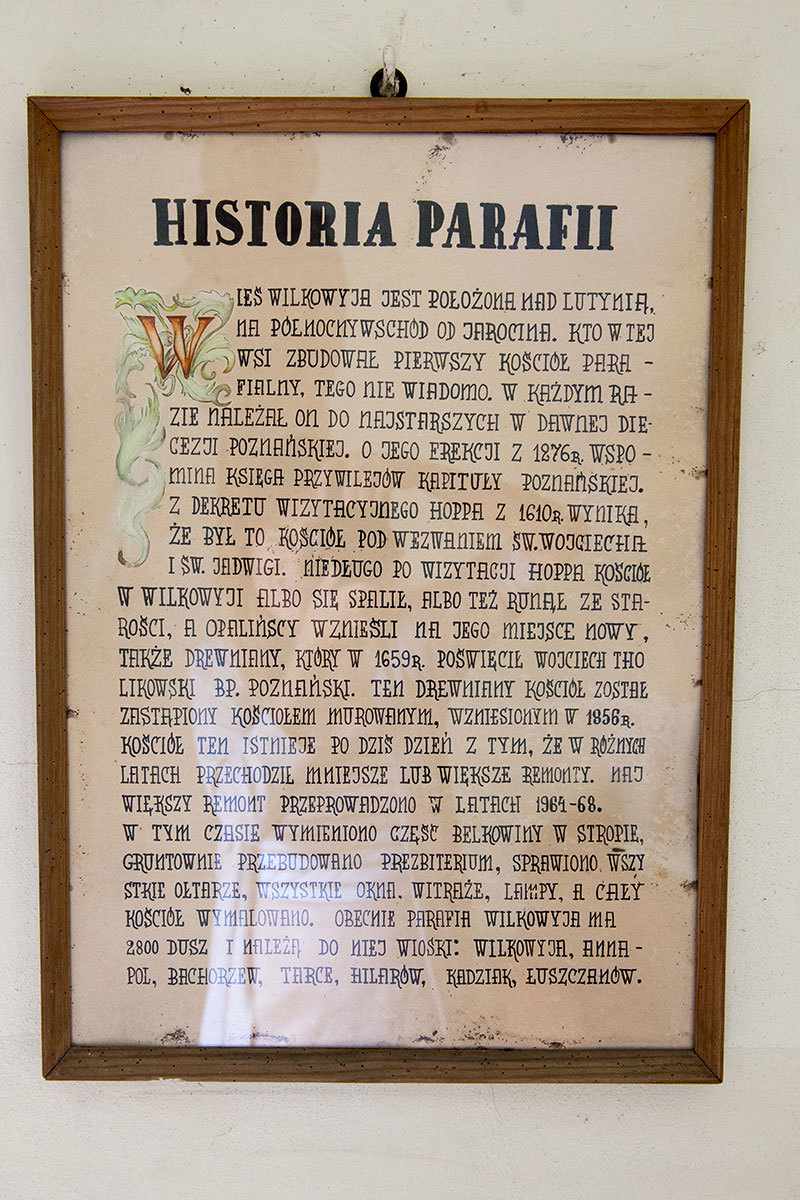 HISTORIA PARAFII
WIEŚ WILKOWYJA JEST POŁOŻONA NAD LUTYNIĄ,
NA PÓŁNOCNYWSCHÓD OD JAROCINA. KTO W TEJ
WSI ZBUDOWAŁ PIERWSZY KOŚCIÓŁ PARA -
FIALNY, TEGO NIE WIADOMO. W KAŻDYM RA -
ZIE NALEŻAŁ ON DO NAJSTARSZYCH W DAWNEJ DIE-
CEZJI POZNAŃSKIEJ. O JEGO EREKCJI Z 1276R. WSPO -
MINA KSIĘGA PRZYWILEJÓW KAPITUŁY POZNAŃSKIEJ.
Z DEKRETU WIZYTACYJNEGO HOPPA Z 1610R. WYNIKA,
ŻE BYŁ TO KOŚCIÓŁ POD WEZWANIEM ŚW. WOJCIECHA
I ŚW. JADWIGI. NIEDŁUGO PO WIZYTACJI HOPPA KOŚCIÓŁ
W WILKOWYJI ALBO SIĘ SPALIŁ, ALBO TEŻ RUNĄŁ ZE STA-
ROŚCI, A OPALIŃSCY WZNIEŚLI NA JEGO MIEJSCE NOWY,
TAKŻE DREWNIANY, KTÓRY W 1659R. POŚWIĘCIŁ WOJCIECH THO
LIKOWSKI BP. POZNAŃSKI. TEN DREWNIANY KOŚCIÓŁ ZOSTAŁ
ZASTĄPIONY KOŚCIOŁEM MUROWANYM, WZNIESIONYM W 1856R.
KOŚCIÓŁ TEN ISTNIEJE PO DZIŚ DZIEŃ Z TYM, ŻE W RÓŻNYCH
LATACH PRZECHODZIŁ MNIEJSZE LUB WIĘKSZE REMONTY. NAJ
WIĘKSZY REMONT PRZEPROWADZONO W LATACH 1964-68.
W TYM CZASIE WYMIENIONO CZĘŚĆ BELKOWINY W STROPIE,
GRUNTOWNIE PRZEBUDOWANO PREZBITERIUM, SPRAWIONO WSZY
STKIE OŁTARZE, WSZYSTKIE OKNA. WITRAŻE, LAMPY, A CAŁY
KOŚCIÓŁ WYMALOWANO. OBECNIE PARAFIA WILKOWYJA MA
2800 DUSZ I NALEŻĄ DO NIEJ WIOSKI: WILKOWYJA, ANNA -
POL, BACHORZEW, TARCE, HILARÓW, KADZIAK, ŁUSZCZANÓW.